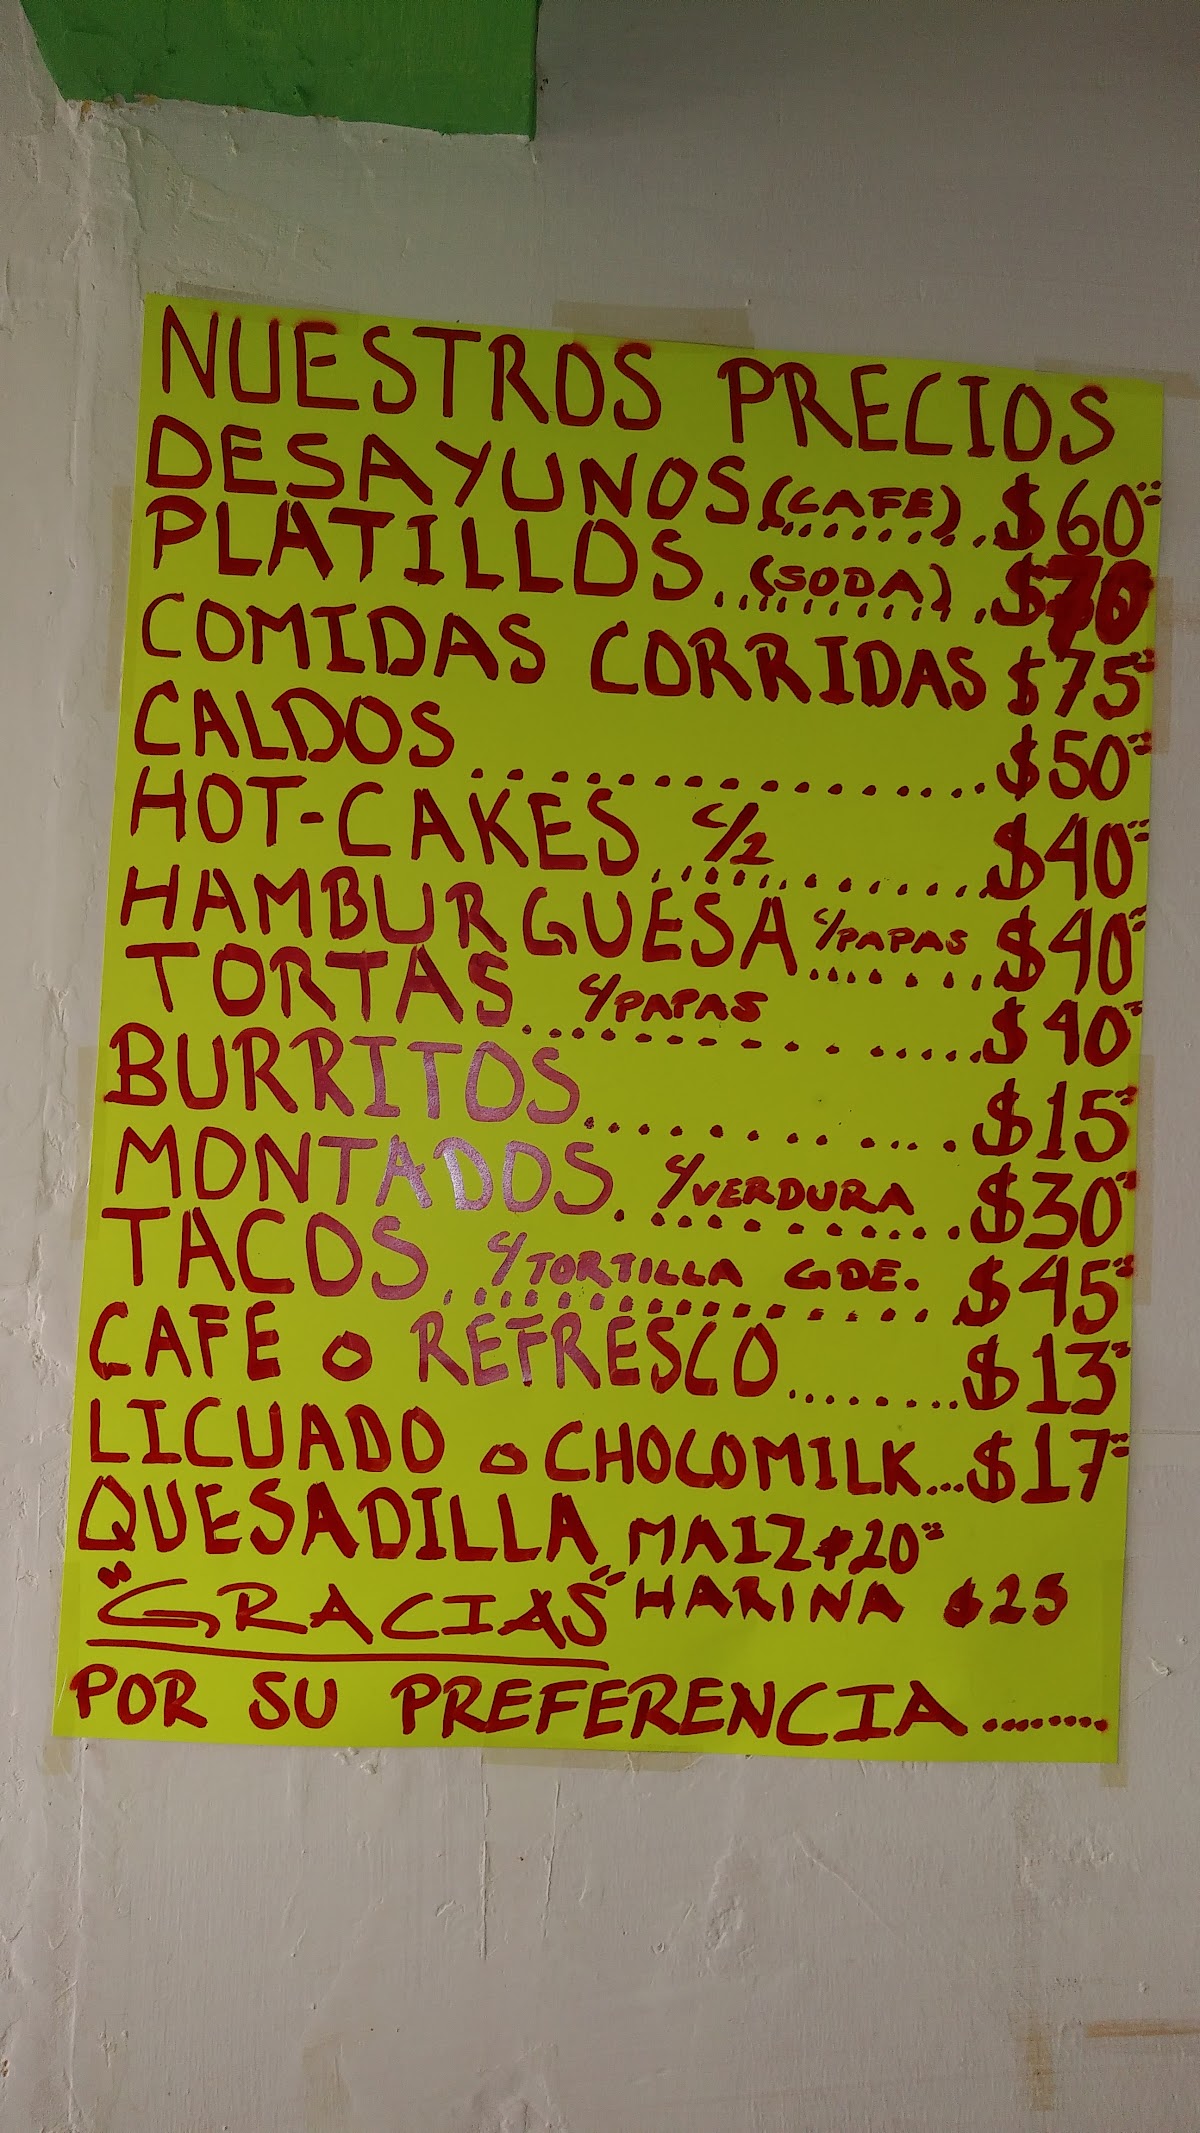 NUESTROS PRECIOS
DESAYUNOS (CAFE) $60=
PLATILLOS (SODA) $70
COMIDAS CORRIDAS $75=
CALDOS $50=
HOT-CAKES C/2 $40=
HAMBURGUESA C/PAPAS $40=
TORTAS C/PAPAS $40=
BURRITOS $15=
MONTADOS C/VERDURA $30=
TACOS C/TORTILLA GDE. $45=
CAFE O REFRESCO $13=
LICUADO O CHOCOMILK... $17=
QUESADILLA MAIZ $20=
HARINA $25
"GRACIAS"
POR SU PREFERENCIA........